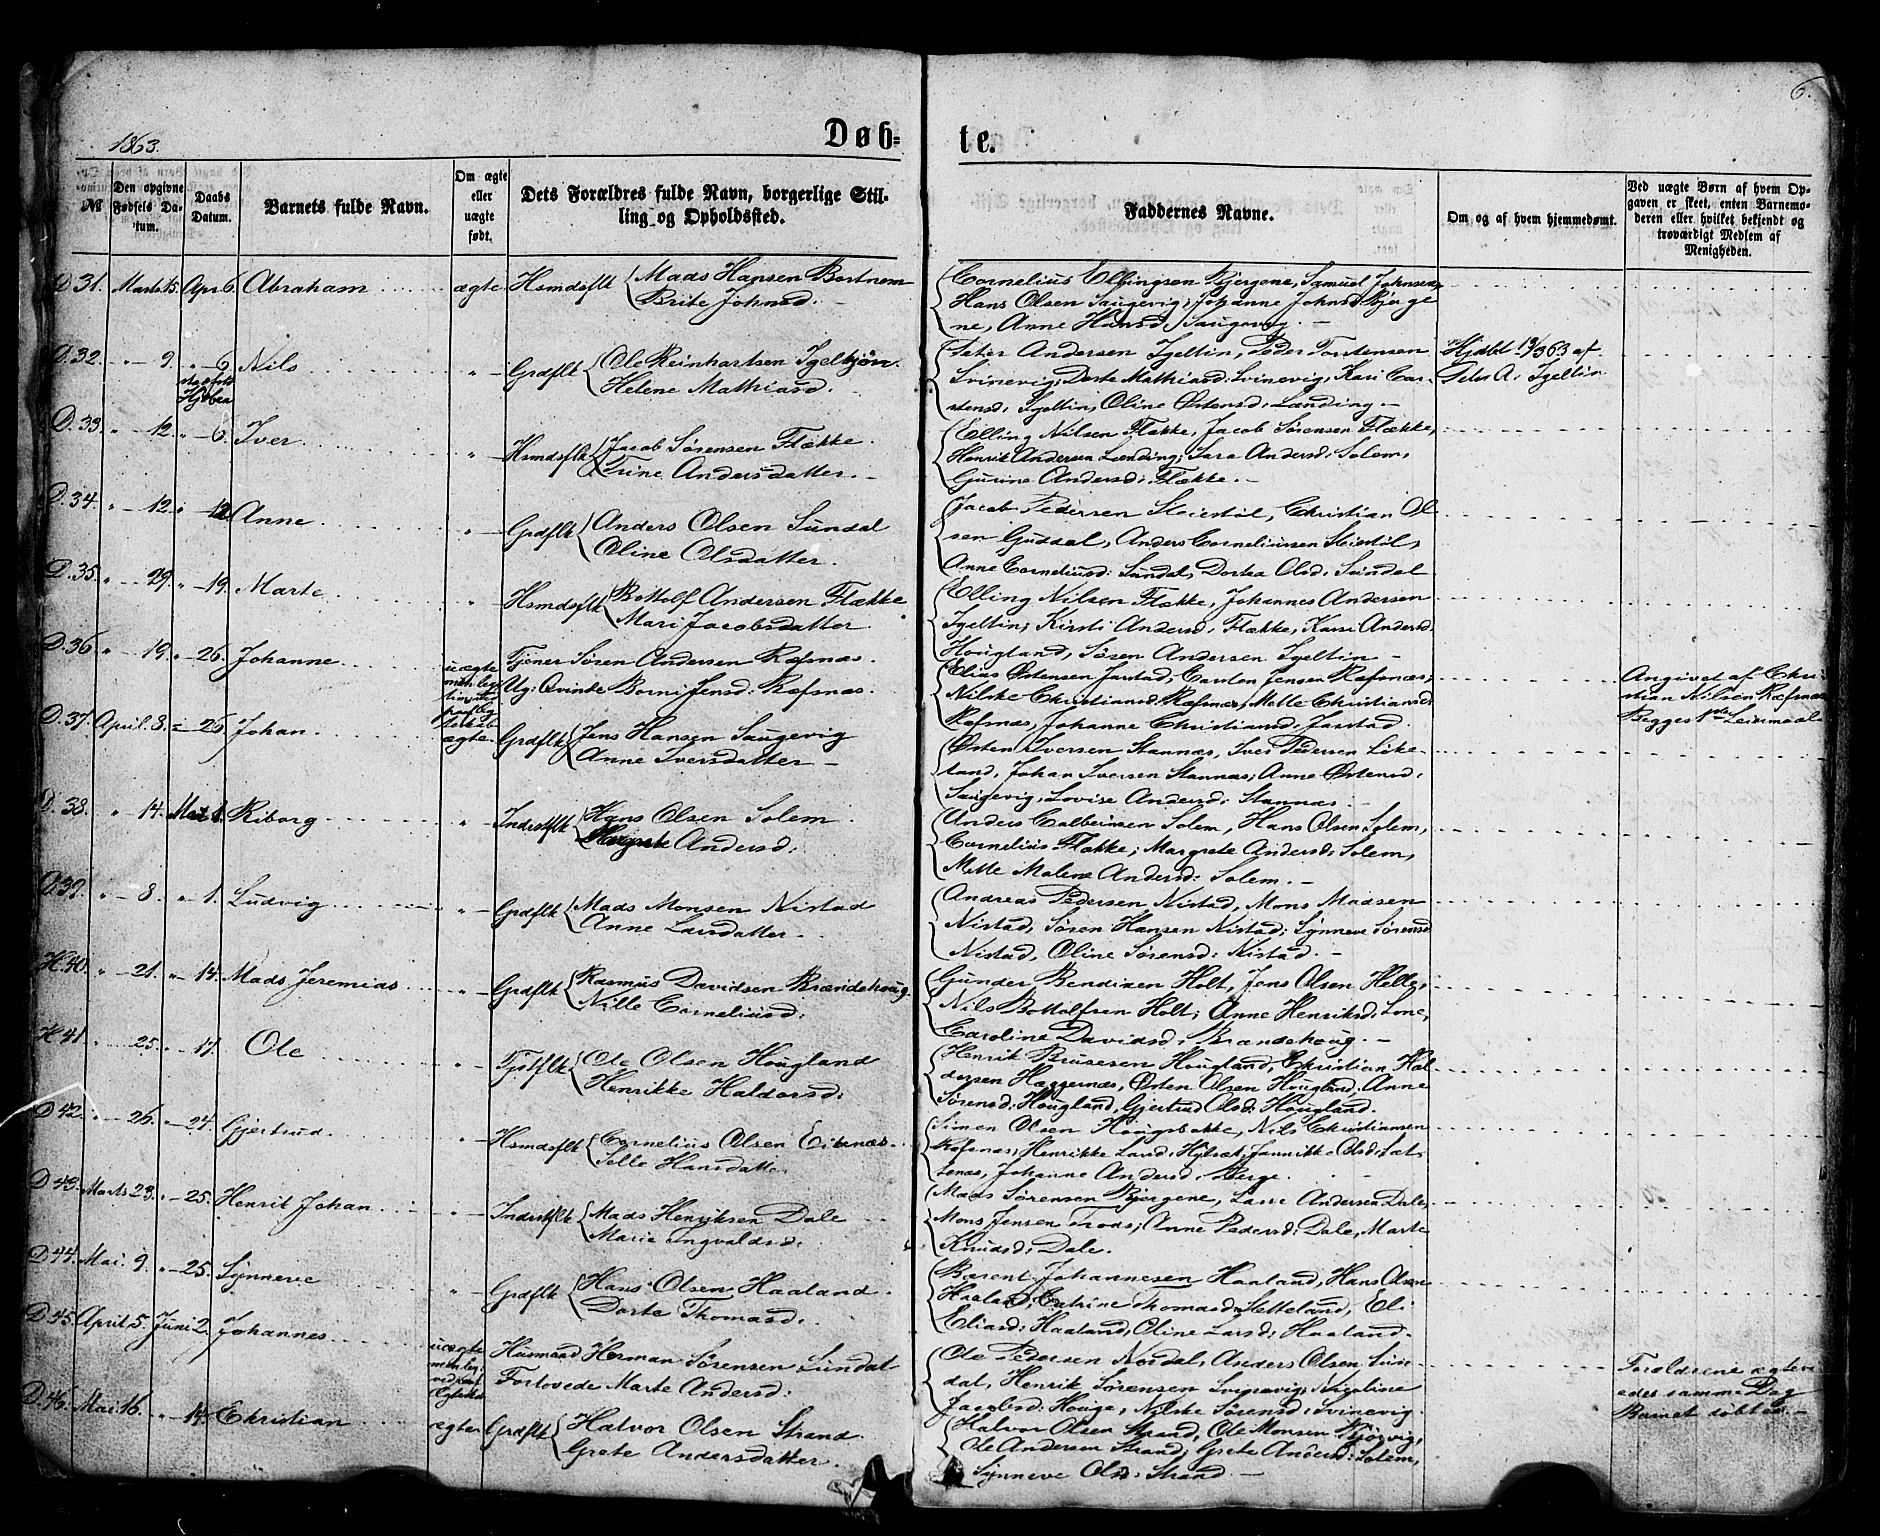 6.
1863.
Døb=
te.
№
Den opgivne Fødsels Da-tum.
Daabs Datum.
Barnets fulde Navn.
Om ægte eller uægte født.
Dets Forældres fulde Navn, borgerlige Stil-
ling og Opholdssted.
Faddernes Navne.
Om og af hvem hjemmedøbt.
Ved uægte Børn af hvem Op-
gaven er skeet, enten Barnemo-
deren eller hvilket bekjendt og
troværdigt Medlem af
Menigheden.
D 31. Marts 15. Apr 6. Abraham ægte Hsmdsflk Mads Hansen Bortnem
Brite Johnsd.
Cornelius Ellingsen Bjergene, Samuel Johnsen,
Hans Olsen Saugevig; Johanne Johnsd. Bjerge
ne, Anne Hansd. Saugevig. —
D. 32. " 9. " 6. Nils " Grdflk Ole Reinhartsen Igelkjøn.
Helene Mathiasd.
Peter Andersen Igeltin, Peder Torstensen
Svinevig; Dorte Mathiasd: Svinevig, Kari Car-
stensd: Igeltin, Oline Østensd: Lænding —
Hjdbt 19/3 63 af
Peter A. Igeltin
D. 33. " 12. " 6. Iver " Hsmdsflk Jacob Sørensen Flække.
Trine Andersdatter. —
Elling Nilsen Flække, Jacob Sørensen Flække,
Henrik Andersen Lænding; Sara Andersd: Solem,
Gurine Andersd: Flække. —
D. 34. " 12. " 12. Anne " Grdflk Anders Olsen Sundal
Oline Olsdatter.
Jacob Pedersen Steiestøl, Christian Ol
sen Guddal, Anders Corneliussen Steiestøl,
Anne Corneliusd: Sundal, Dortea Olsd: Sundal
D. 35. " 29. " 19. Marte " Hsmdsflk Bottolf Andersen Flække
Mari Jacobsdatter.
Elling Nilsen Flække, Johannes Andersen
Igeltin; Kirsti Andersd. Flække, Kari Andersd:
Hougland, Søren Andersen Igeltin —
D. 36. " 19. " 26. Johanne uægte Tjener Søren Andersen Ræfsnæs.
Ug: Qvinde Borni Jensd: Ræfsnæs.
Elias Østensen Jarstad, Carsten Jensen Ræfsnæs;
Nilske Christiansd: Ræfsnæs, Mette Christiansd:
Ræfsnæs, Johanne Christiansd, Jarstad.
Angivet af Chri
stian Nilsen Ræfsnæs
Begges 1ste Leiermaal
D. 37. April. 8. " 26. Johan. ægte. Grdflk Jens Hansen Saugevig
Anne Iversdatter —
Østen Iversen Stannæs, Iver Pedersen Like-
land, Johan Iversen Stannæs; Anne Østensd:
Saugevig, Lovise Andersd: Stannæs. —
D. 38. " 14. Mai 1. Riborg " Inderstflk Hans Olsen Solem
Margrete Andersd:
Anders Colbeinsen Solem, Hans Olsen Solem,
Cornelius Flække; Margrete Andersd: Solem,
Mette Malene Andersd: Solem. —
D. 39. " 8. " 1. Ludvig " Grdflk Mads Monsen Nistad
Anne Larsdatter —
Andreas Pedersen Nistad, Mons Madsen
Nistad, Søren Hansen Nistad; Synneve Sørensd
Nistad, Oline Sørensd: Nistad. —
H. 40. " 21. " 14. Mads Jeremias " Grdflk Rasmus Davidsen Brændehoug
Nille Corneliusd:
Gunder Bendixen Holt, Jens Olsen Helle;
Nils Bottolfsen Holt; Anne Henriksd: Lone,
Caroline Davidsd: Brændehoug. —
H 41 " 25. " 17. Ole " Tjstflk Ole Olsen Hougland
Henrikke Haldorsd:
Henrik Brusesen Hougland, Christian Hal
dorsen Hæggernæs, Østen Olsen Hougland; Anne
Sørensd: Hougland, Gjertrud Olsd: Hougland.
D 42. " 26. " 24. Gjertrud. " Hsmdsflk Cornelius Olsen Eikenæs
Selle Hansdatter
Simon Olsen Hougsbakke, Nils Christiansen
Ræfsnæs, Henrikke Larsd,
Johanne Andersd: Berge.
D 43. Marts 23. " 25. Henrik Johan " Inderstflk Mads Henriksen Dale
Marie Ingvaldsd:
Mads Sørensen Bjergene, Lasse Andersen Dale,
Mons Jensen Frods; Anne Pedersd: Dale, Marte
Knudsd: Dale.
D 44. Mai. 9. " 25. Synneve " Grdflk Hans Olsen Haaland.
Dorte Thomasd:
Bærent Johannesen Haaland, Hans Olsen
Haaland; Catrine Thomasd: Sætteland, Eli
Eliasd: Haaland, Oline Larsd: Haaland.
D 45. April 5. Juni 2. Johannes uægte Husmand Herman Sørensen Sundal
Forlovede Marte Andersd:
Ole Pedersen Nordal, Anders Olsen Sun-
dal, Henrik Sørensen Svinevig; Nigeline
Jacobsd: Houge, Nilske Sørensd: Svinevig.
Forældrene ægtevi
edes samme Dag
Barnet døbtes. —
D. 46. Mai 16. " 14. Christian ægte Grdflk Halvor Olsen Strand
Grete Andersdatter.
Halvor Olsen Strand, Ole Monsen Bjørvig,
Ole Andersen Strand; Grete Andersd: Solem,
Synneve Olsd: Strand —